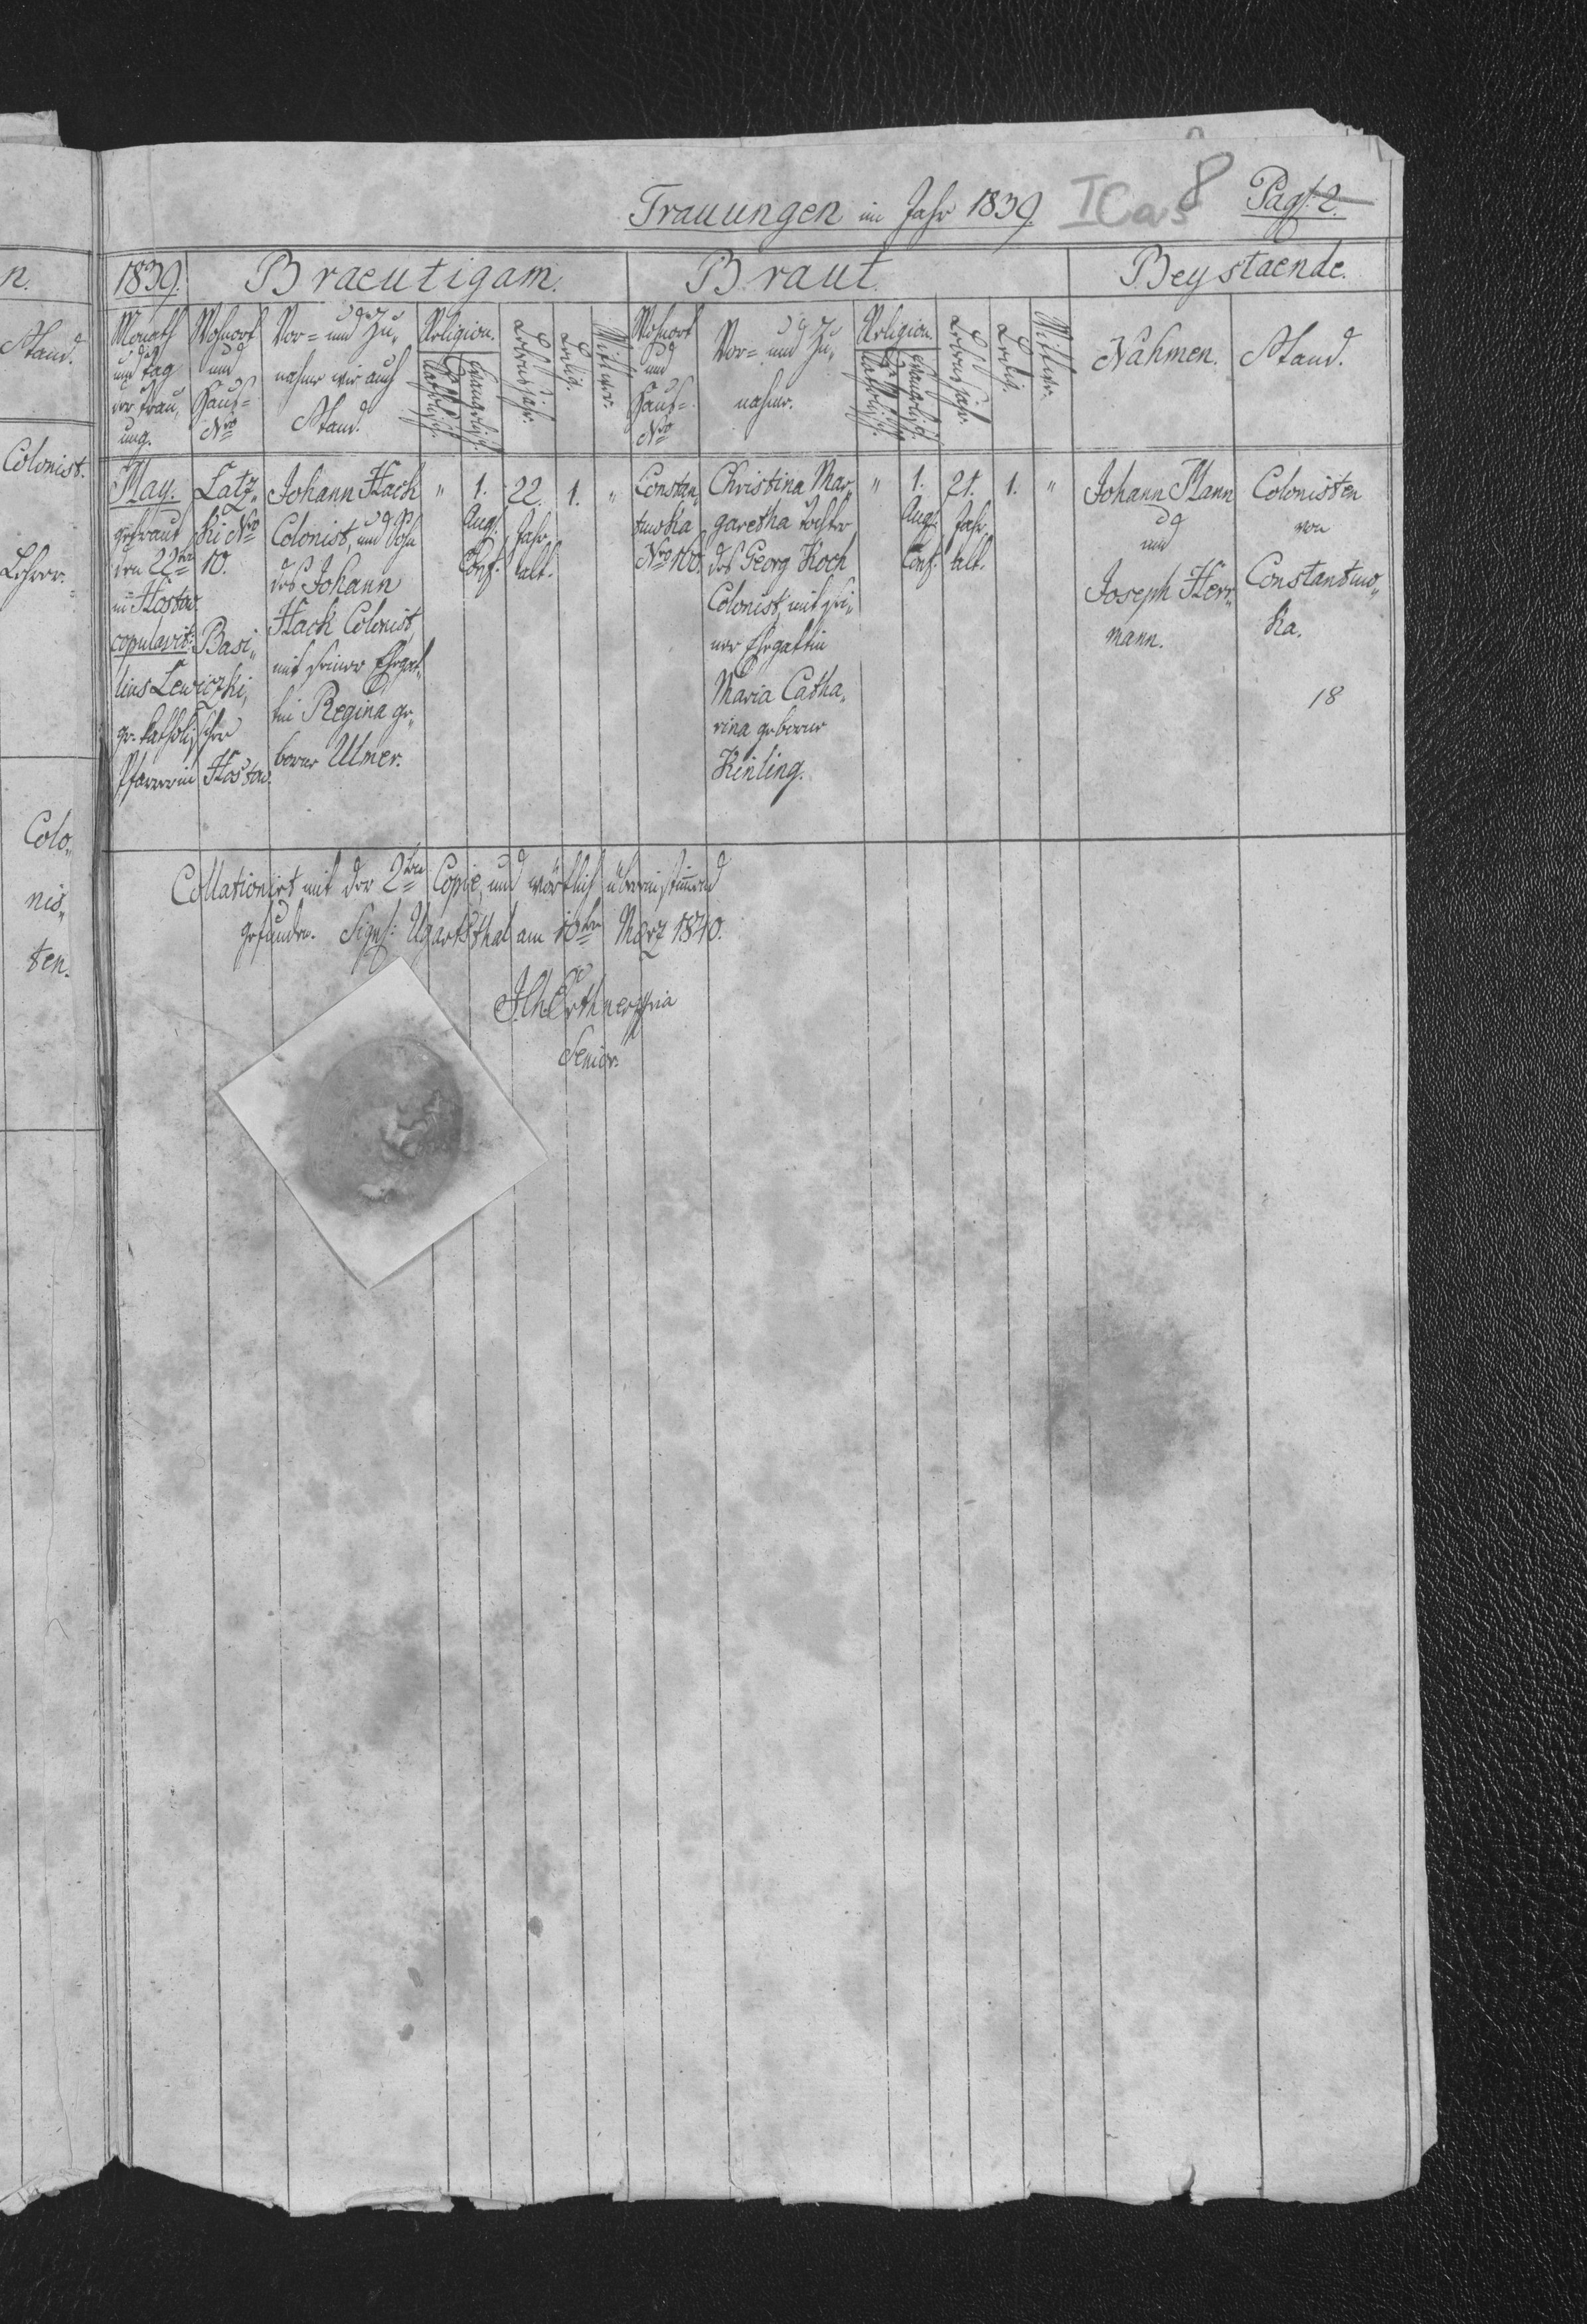 Trauungen im Jahr 1839. ICa 8 Pag. 2.
1839. Braeutigam. Braut. Beystaende.
Monath und Tag der Trau„ ung.
Wohnort und Haus= Nro
Vor= und Zu„ nahme wie auch Stand.
Religion.
Katholisch.
Evangelisch.
Lebensjahr.
Ledig.
Wittwer.
Wohnort und Haus= Nro
Vor= und Zu„ nahme.
Religion.
Katholisch.
Evangelisch.
Lebensjahr.
Ledig.
Wittwe.
Nahmen.
Stand.
May.
getraut
den 22ten
in Hostow
copulavit: Basi„
lius Lewiczki,
gr. katholischer
Pfarrer in Hostow.
Latz„
ki Nro
10.
Johann Hack
Colonist, und Sohn
des Johann
Hack Colonist,
mit seiner Ehegat„
tin Regina ge„
borne Ulmer.
"
1.
Aug.
Conf.
22.
Jahr
alt.
1.
"
Constan„
tinoka
Nro 160.
Christina Mar„
garetha Tochter
des Georg Koch
Colonist, mit sei„
ner Ehegattin
Maria Catha„
rina geborne
Kinling.
"
1.
Aug.
Conf.
21.
Jahr
alt.
1.
"
Johann Mann
und
Joseph Herr„
mann.
Colonisten
von
Constantino„
ka.
18
Collationirt mit der 2ten Copie, und wörtlich übereinstimmend
gefunden. Sigs: Ugartsthal am 10ten März 1840.
Senior.
n.
Stand.
Colonist.
Lehrer.
Colo„
nis„
ten.